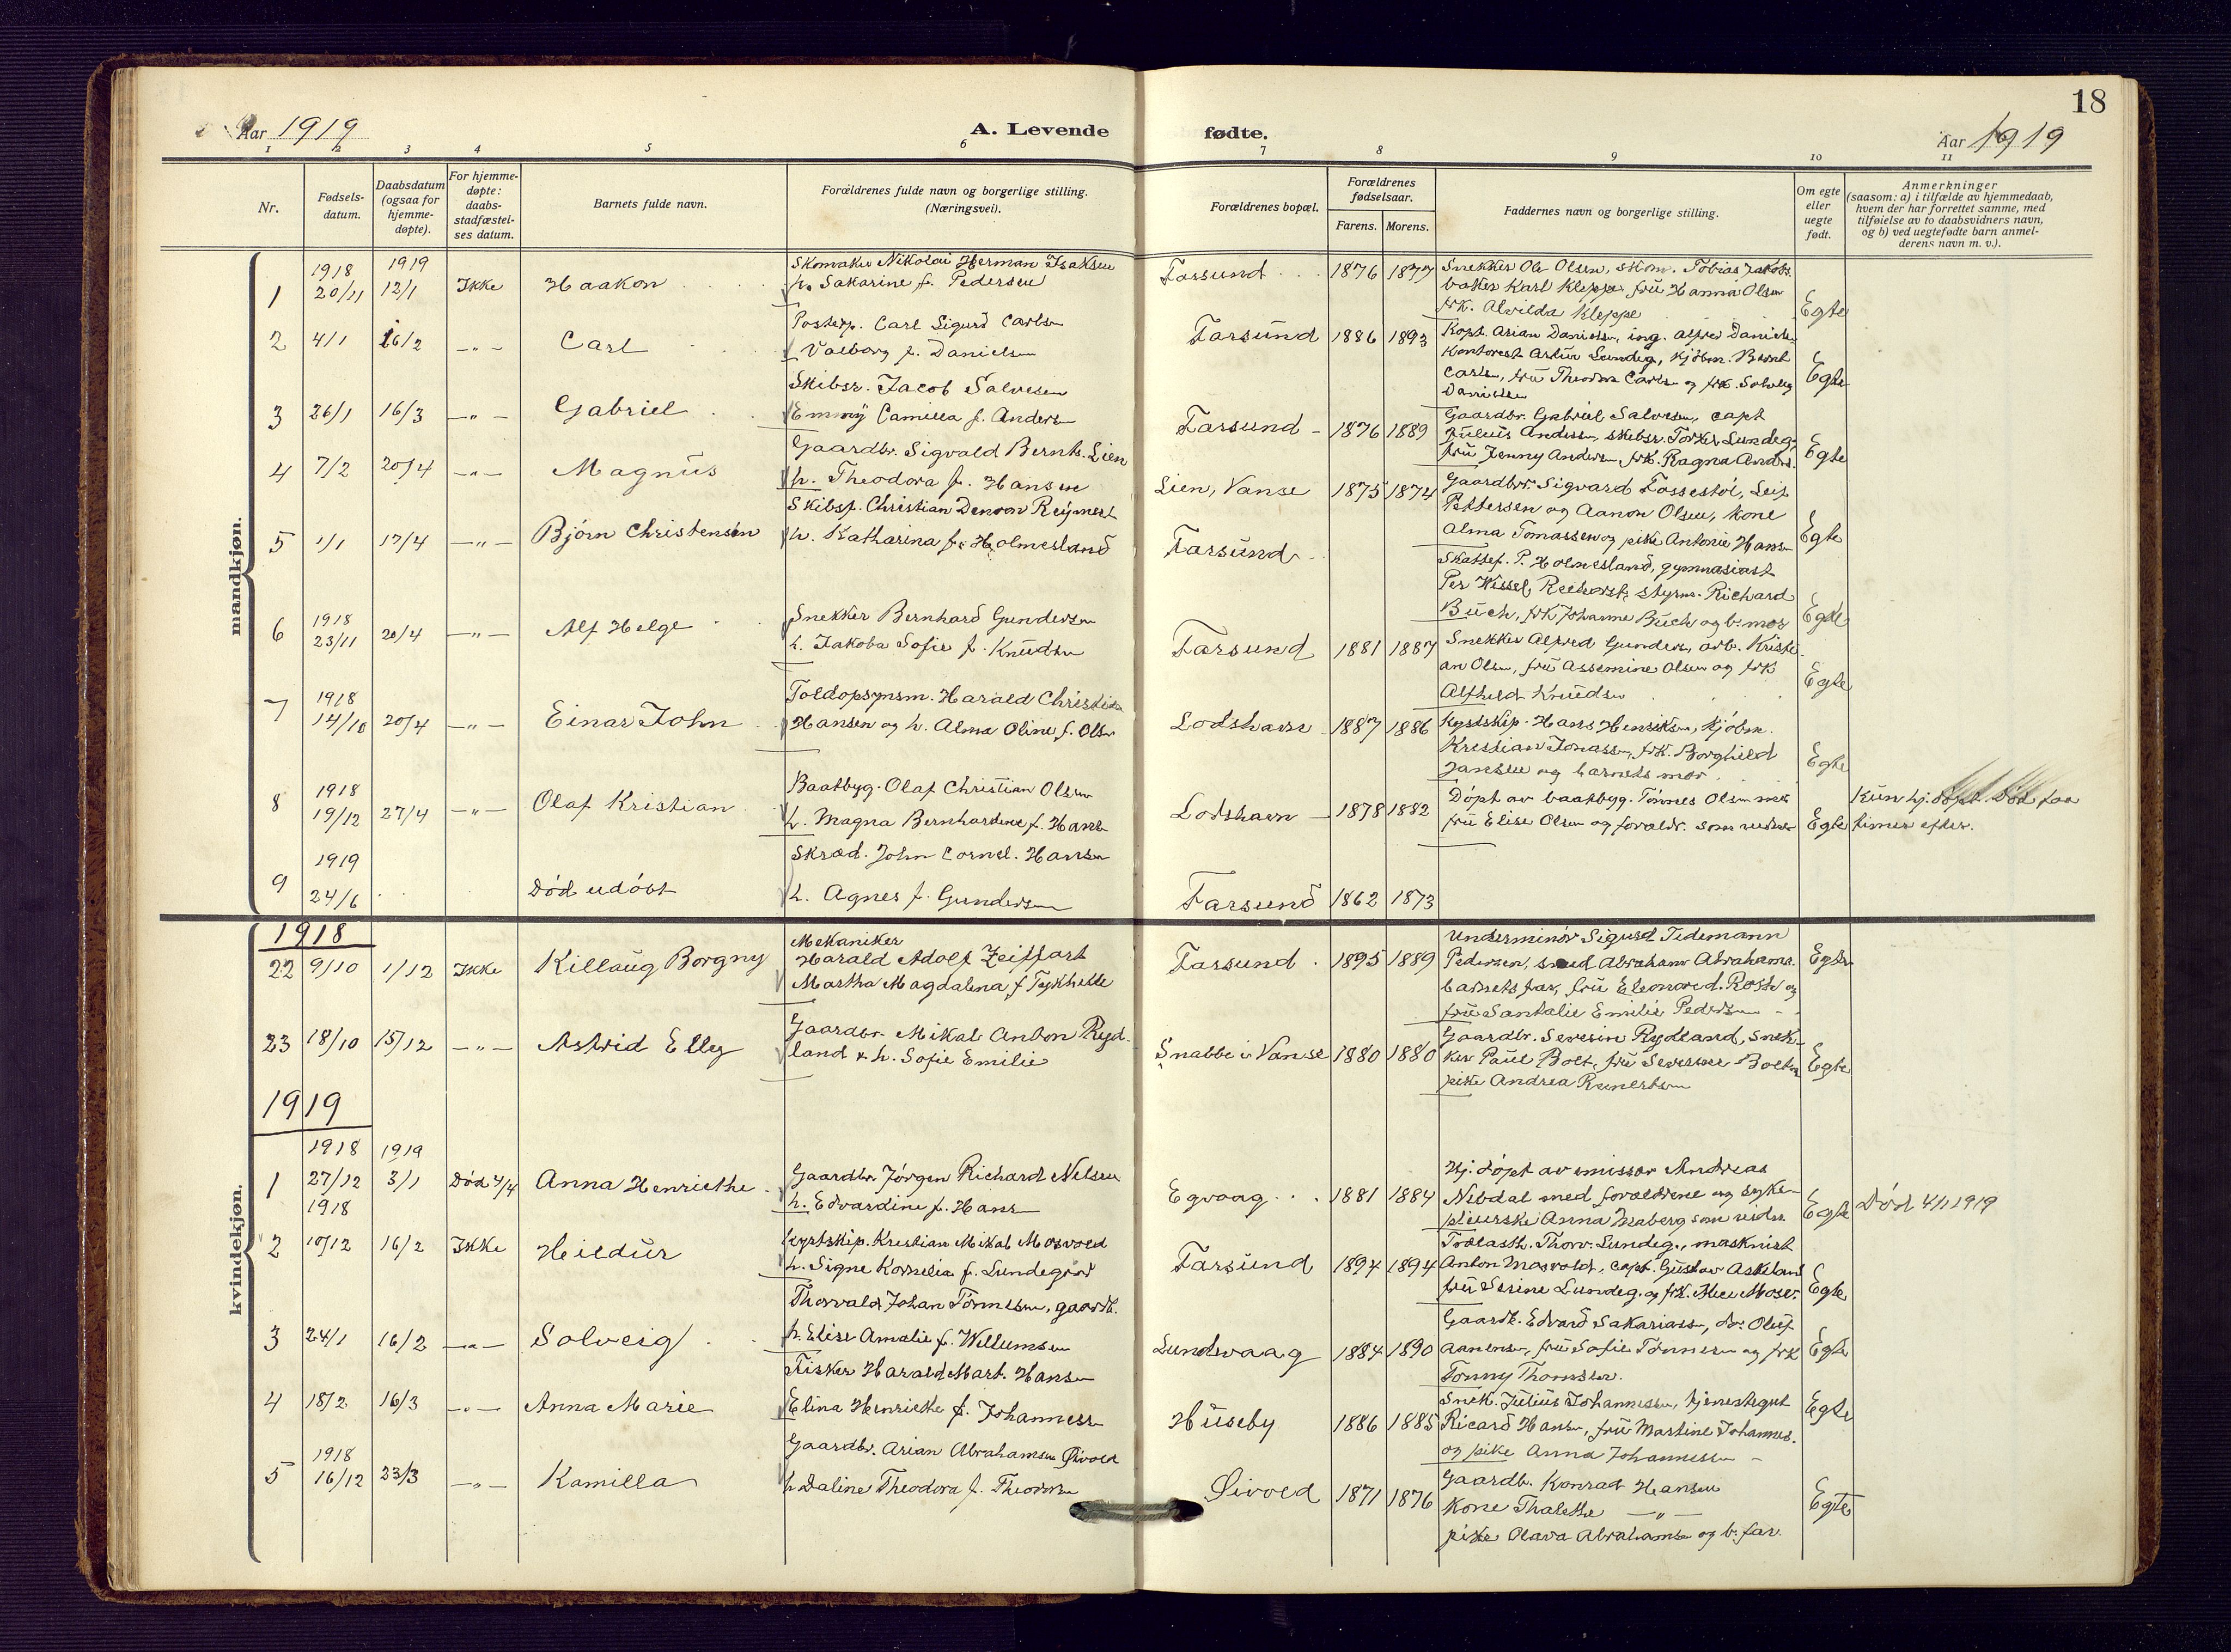 18
Aar 1919
A. Levende
fødte.
Aar 1919
1 2 3 4 5 6 7 8 9 10 11
Nr.
Fødsels-
datum.
Daabsdatum
(ogsaa for
hjemme-
døpte).
For hjemme-
døpte:
daabs-
stadfæstel-
ses datum.
Barnets fulde navn.
Forældrenes fulde navn og borgerlige stilling.
(Næringsvei).
Forældrenes bopæl.
Forældrenes
fødselsaar.
Farens. Morens.
Faddernes navn og borgerlige stilling.
Om egte
eller
uegte
født.
Anmerkninger
(saasom: a) i tilfælde av hjemmedaab,
hvem der har forrettet samme, med
tilføielse av to daabsvidners navn,
og b) ved uegtefødte barn anmel-
derens navn m. v.).
mandkjøn.
1 1918 20/11 1919 12/1 Ikke Haakon
Skomaker Nikolai Herman Isaksen
h. Sakarine f. Pedersen
Farsund 1876 1877
Snekker Ole Olsen, skom. Tobias Jakobs.
baker Karl Kleppe, frü Hanna Olsen
frk. Alvilda Kleppe
Egte
2 4/1 16/2 -"- Carl
Postexp. Carl Sigurd Carlsen
Valborg f. Danielsen
Farsund 1886 1893
Kapt. Arian Danielsen, ing. Alfred Daniels.
Kontorist Artür Lundeg., kjöbm. Bernt
Carls., frü Theodora Carls. og frk. Solveig
Danielsen
Egte
3 26/1 16/3 -"- Gabriel
Skibsr. Jacob Salvesen
Emmÿ Camilla f. Anders.
Farsund 1876 1889
Gaardbr. Gabriel Salvesen, capt
Jülius Andersen, skibsr. Torkel Lundeg.
frü Jenny Andersen, frk. Ragna Anders.
Egte
4 7/2 20/4 -"- Magnüs
Gaardbr. Sigvald Bernts. Lien
h. Theodora f. Hansen
Lien, Vanse 1875 1874
Gaardbr. Sigvard Fossestöl, Leif
Pettersen og Aanon Olsen, kone
Alma Tomassen og pike Antonie Hans.
Egte
5 1/1 17/4 -"- Björn Christensen
Skibsf. Christian Reÿmert
h. Katharina f. Holmesland
Farsünd
Skattef. P. Holmesland, gymnasiast
Per Wessel, styrm. Richard
Büch, frk Johanne Büch og b. mor
Egte
6 1918 23/11 20/4 -"- Alf Helge
Snekker Bernhard Gundersen
h. Jakoba Sofie f. Knüdsen
Farsund 1881 1887
Snekker Alfred Gunders., arb. Kristi-
an Olsen, frü Assemine Olsen og frk
Alfhild Knüdsen
Egte
7 1918 14/10 20/4 -"- Einar John
Toldopsynsm. Harald Christian
Hansen og h. Alma Oline f. Olsen
Lodshavn 1887 1886
Kystskip. Hans Henriksen, kjöbm.
Kristian Jonassen, frk. Borghild
Jansen og barnets mor
Egte
8 1918 19/12 27/4 -"- Olaf Kristian
Baatbyg. Olaf Christian Olsen
h. Magna Bernhardine f. Hans.
Lodshavn 1878 1882
Döpt av baatbyg. Tönnes Olsen med
frü Elise Olsen og forældr. som vidner
Egte
Kün hj. döpt. Död faa
timer efter.
9 1919 24/6 Död udöbt
Skræd. John Cornel. Hansen
h. Agnes f. Gundersen
Farsund 1862 1873
kvindekjøn.
1918
22 9/10 1/12 Ikke Killaüg Borgny
Mekaniker
Harald Adolf Zeiffart
Martha Magdalena f.
Farsund 1895 1889
Underminör Sigurd Tidemann
Pedersen, smed Abraham Abrahams.
barnets far, frü Eleonore d. og
frü Santalie Emilie Pedersen
Egte
23 18/10 15/12 -"- Astrid Elly
Gaardbr. Mikal Anton Ryd-
land & h. Sofie Emilie
Snabbe i Vanse 1880 1880
Gaardbr. Severin Rydland, snek-
ker Paül Bolt, frü Severine Bolt,
pike Andrea Reinertsen
Egte
1919
1 1918 27/12 1919 3/1 Död 4/4 Anna Henriette
Gaardbr. Jörgen Richard Nilsen
h. Edvardine f. Hans.
Egvaag 1881 1884
Hj. döpt av emissær Andreas
Nebdal med forældrene og syke-
pleierske Anna Maberg som vidn.
Egte
Död 4/1 1919
2 1918 10/12 16/2 Ikke Heildür
Kystskip. Kristian Mikal Mosvold
h. Signe Kornelia f. Lundegård
Farsünd 1894 1894
Trælasth. Thorv. Lundeg., maskinist
Anton Mosvold, capt. Güstav Askeland
frü Serine Lundeg. og frk. Alice Mosv.
Egte
3 24/1 16/2 -"- Solveig
Thorvald Johan Tönnesen, gaardb.
h. Elise Amalie f. Willumsen
Lundevaag 1884 1890
Gaardb. Edvard Sakariass., do. Oluf
Aanens., frü Sofie Tönnesen og frk
Tonny Thomsen.
Egte
4 18/2 16/3 -"- Anna Marie
Fisker Harald Mart. Hansen
Elina Henriette f. Johannessen
Hüseby 1886 1885
Snek. Jülius Johannessen, tjenestegut
Ricard Hansen, frü Martine Johannes.
og pike Anna Johannessen
Egte
5 1918 16/12 23/3 -"- Kamilla
Gaardb. Arian Abrahamsen Öivold
h. Daline Theodora f. Theodors.
Öivold 1871 1876
Gaardb. Konrad Hansen
Kone Thalethe -"-
pike Olava Abrahamsen og b. far
Egte